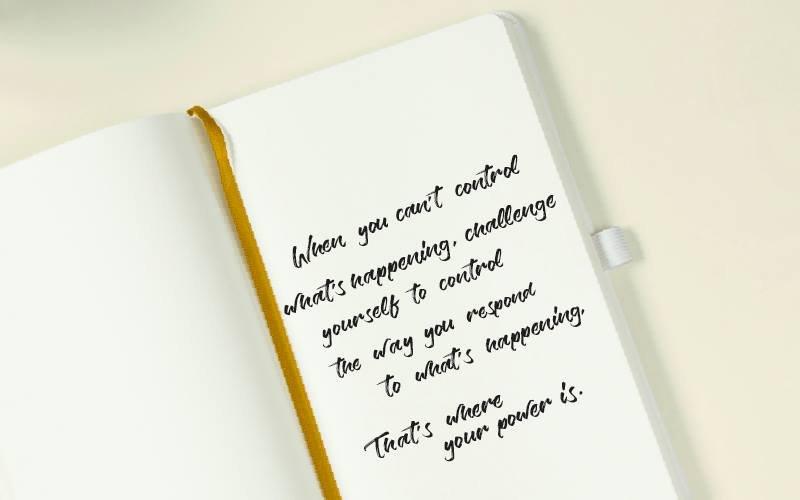 When you can't control
what's happening, challenge
yourself to control
the way you respond
to what's happening.
That's where
your power is.